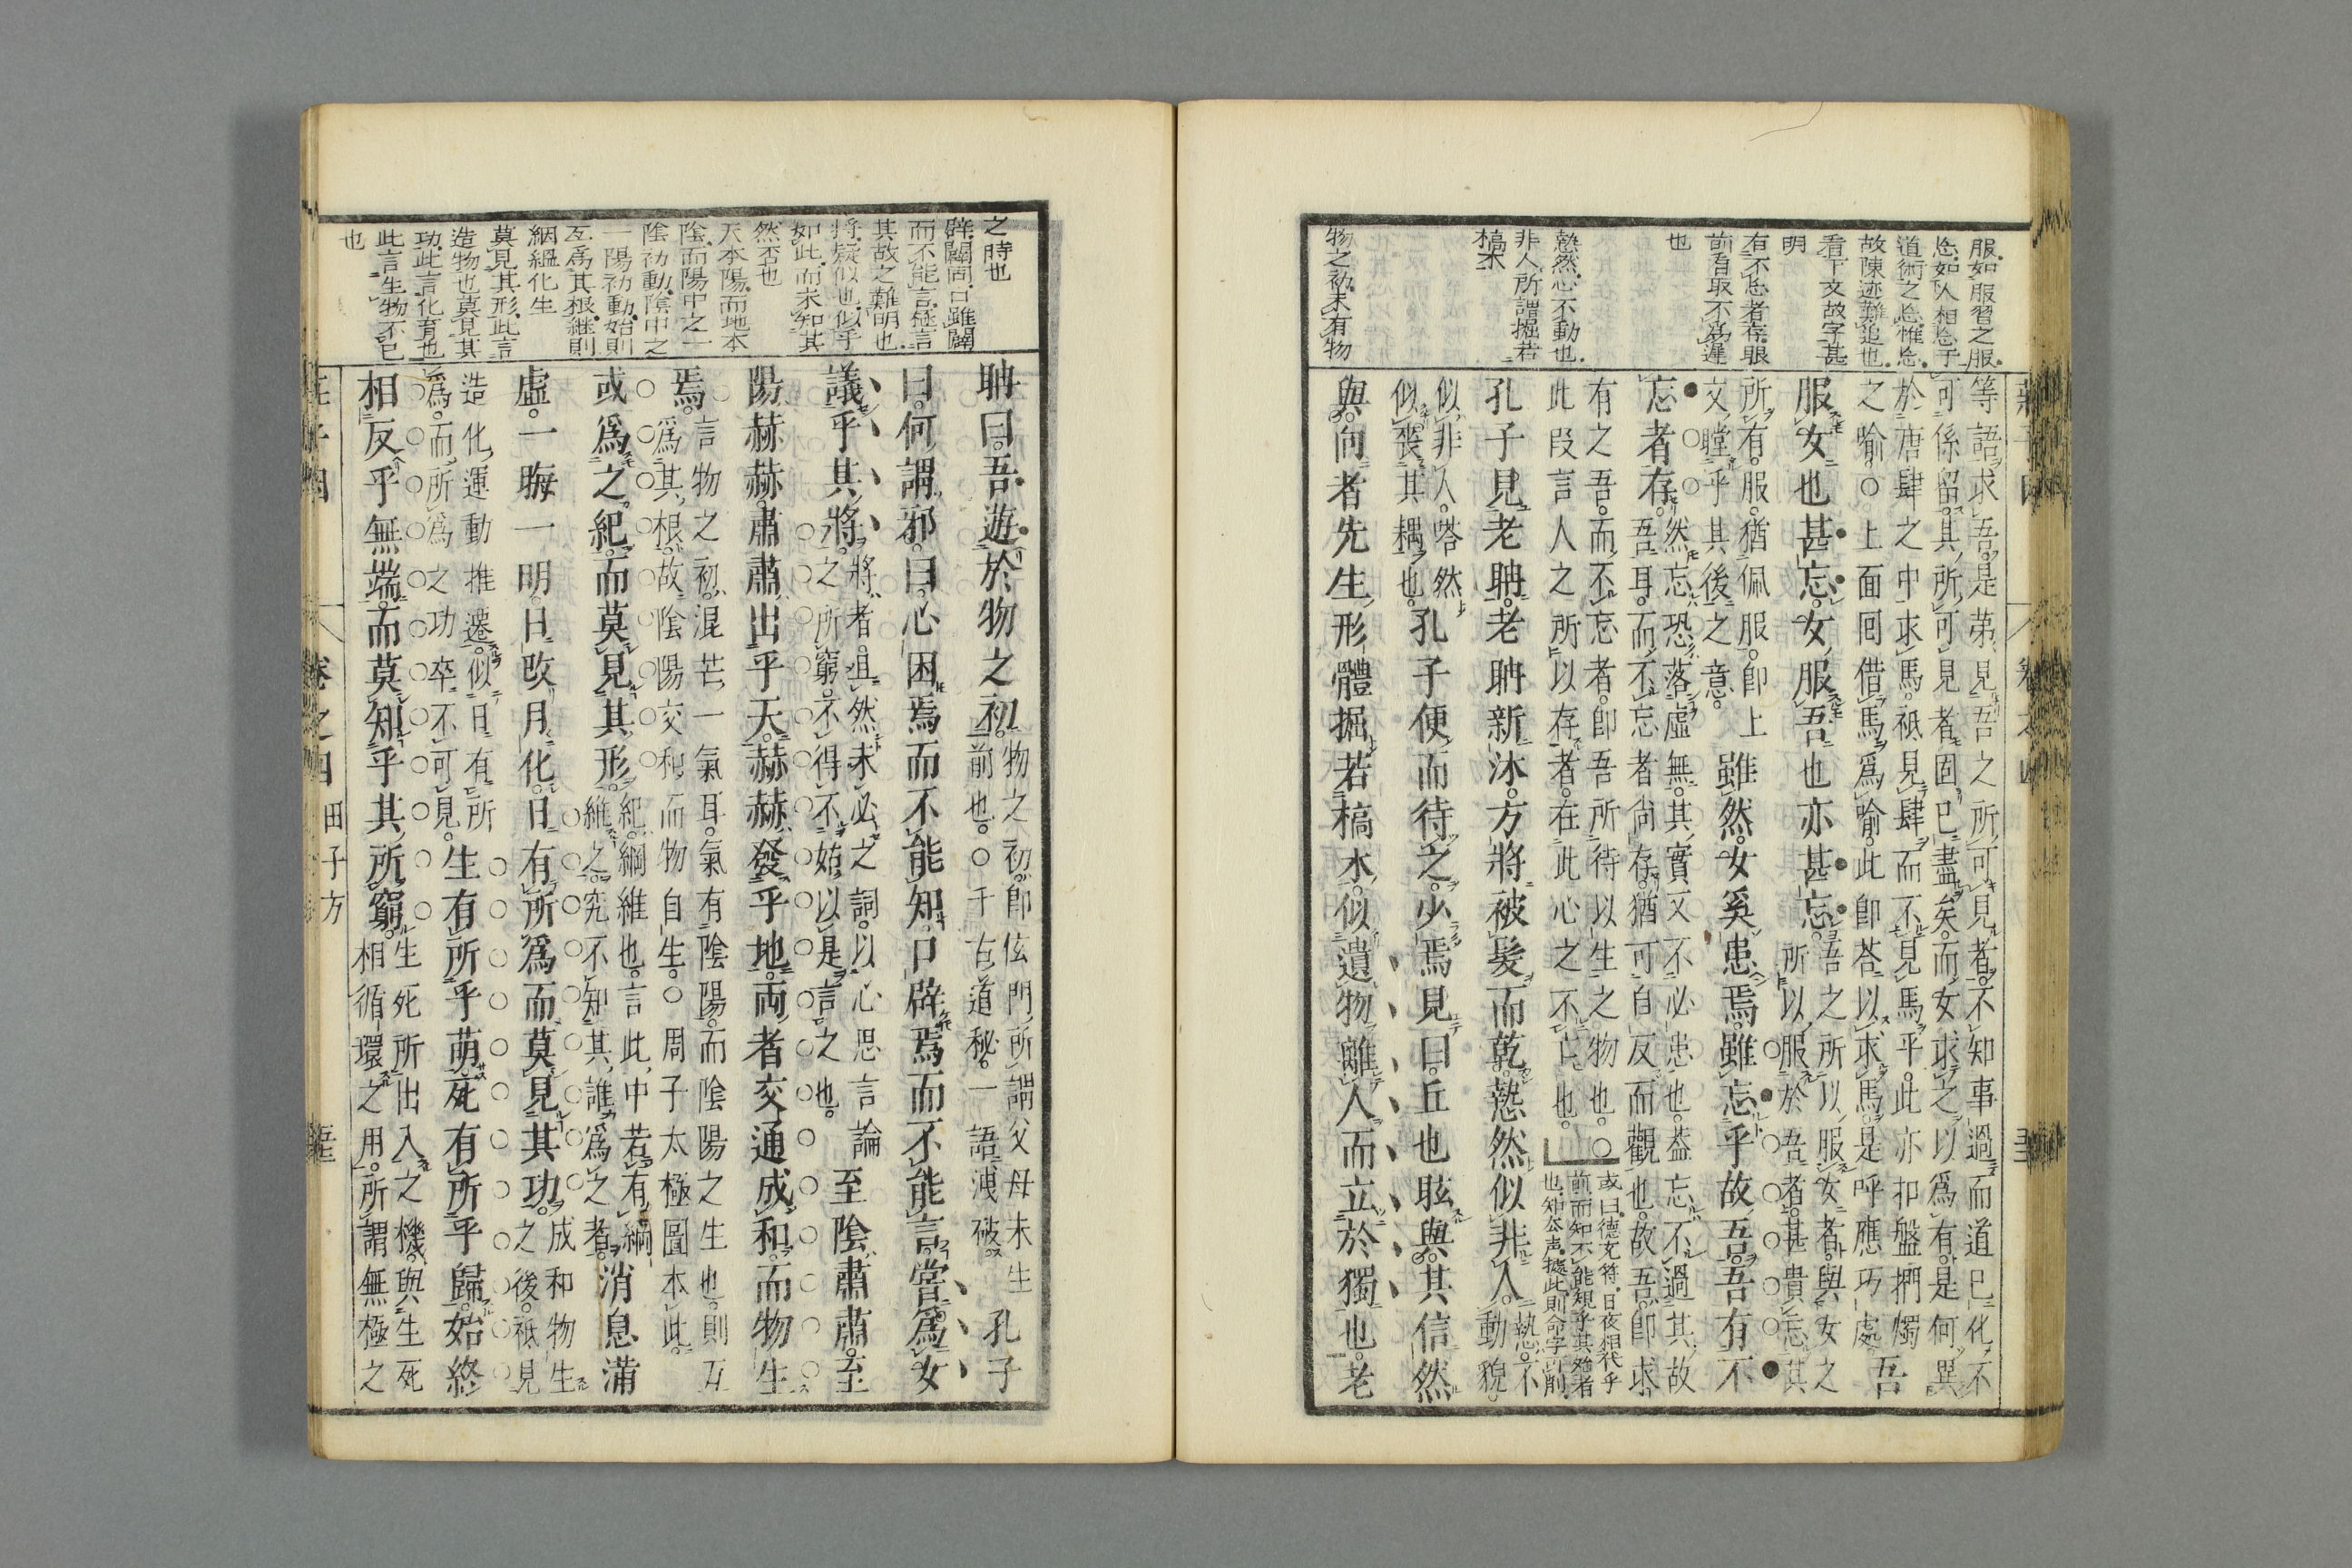 服。如服習之服。
忘。如人相忘于
道術之忘。惟忘。
故陳迹難追也。
看下文故字甚
明
有不忘者存。眼
前自取不爲遲
也
慹然。心不動也。
非人。所謂掘若
槁木
物之初。未有物
等語。求吾。是第見吾之所可見者。不知事過而道已化。不
可係留。其所可見者。固已盡矣。而女求之以爲有。是何異
於唐肆之中求馬。祇見肆而不見馬乎。此亦扣盤捫燭
之喻。○上面回借馬爲喻。此即荅以求馬。是呼應巧處
吾
服女也甚忘。女服吾也亦甚忘。
吾之所以服女者。與女之
所以服於吾者。甚貴忘其
所有。服。猶佩服。即上
文瞠乎其後之意。
雖然。女奚患焉。雖忘乎故吾。吾有不
忘者存。
然忘恐落虛無。其實又不必患也。葢忘不過其故
吾耳。而不忘者尙存。猶可自反而觀也。故吾。即求
有之吾。而不忘者。即吾所待以生之物也。○
此段言人之所以存者。在此心之不亡也。
或曰。德充符。日夜相代乎
前。而知不能規乎其始者
也。知。去声。據此。則命字可削。
孔子見老聃。老聃新沐。方將被髮而乾。慹然似非人。
慹。不
動貌。
似非人。嗒然
似喪其耦也。
孔子便而待之。少焉見曰。丘也眩與。其信然
與。向者先生形體掘若槁木。似遺物離人而立於獨也。老
之時也
辟。闢同。口雖闢
而不能言。極言
其故之難明也。
將。疑似也。似乎
如此。而未知其
然否也
天本陽。而地本
陰。而陽中之一
陰初動。陰中之
一陽初動。始則
互爲其根。継則
絪縕化生
莫見其形。此言
造物也。莫見其
功。此言化育也
此言生物不已
也
聃曰。吾遊於物之初。
物之初。即佉門所謂父母未生
前也。○千古道秘。一語洩破。
孔子
曰。何謂邪。曰。心困焉而不能知。口辟焉而不能言。嘗爲女
議乎其將。
將者。且然未必之詞。以心思言論
之所窮。不得不始以是言之也。
至陰肅肅。至
陽赫赫。肅肅出乎天。赫赫發乎地。兩者交通成和。而物生
焉。
言物之初。混芒一氣耳。氣有陰陽。而陰陽之生也。則互
爲其根。故陰陽交和而物自生。○周子太極圖本此。
或爲之紀。而莫見其形。
紀。綱維也。言此中若有綱
維之。究不知其誰爲之者。
消息滿
虛。一晦一明。日改月化。日有所爲而莫見其功。
成和物生
之後。祗見
造化運動推遷。似日有所
爲。而所爲之功卒不可見。
生有所乎萌。死有所乎歸。始終
相反乎無端。而莫知乎其所窮。
生死所出入之機。與生死
相循環之用。所謂無極之
卷之四
田子方